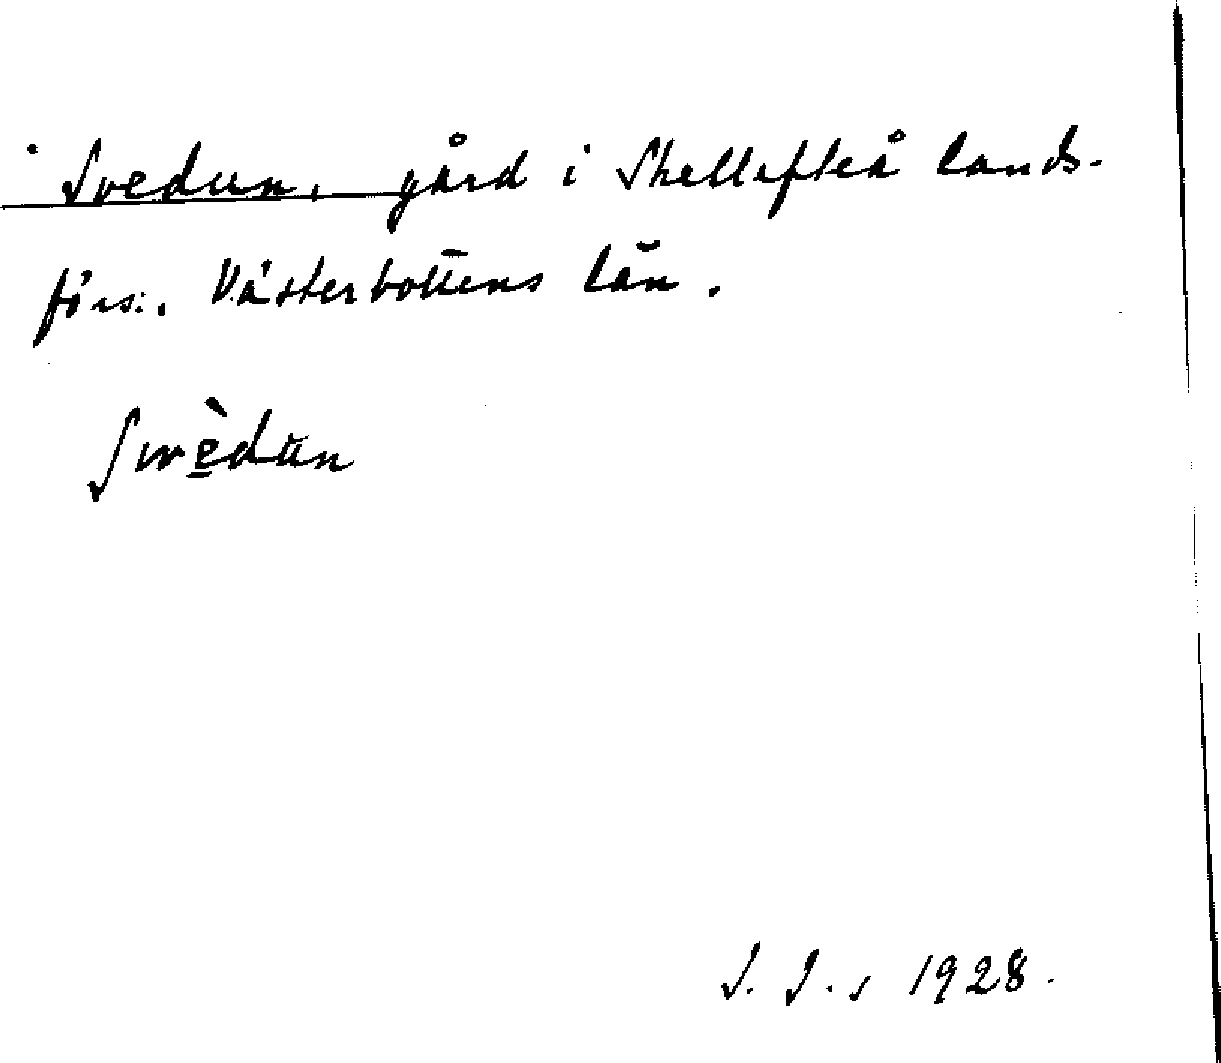 Svedun, gård i Skellefteå lands-
förs:, Västerbottens län.
Swèdun
J. J., 1928.